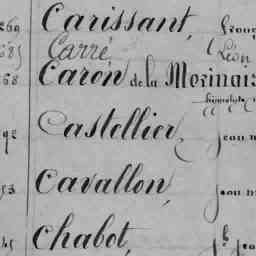 269 Carissant, Franç
685 Carré, Léon
68 Caron de la Morinais
hippolyte
92 Castellier, Jean m
53 Cavallon, Jean m
45 Chabot, Jh Jea